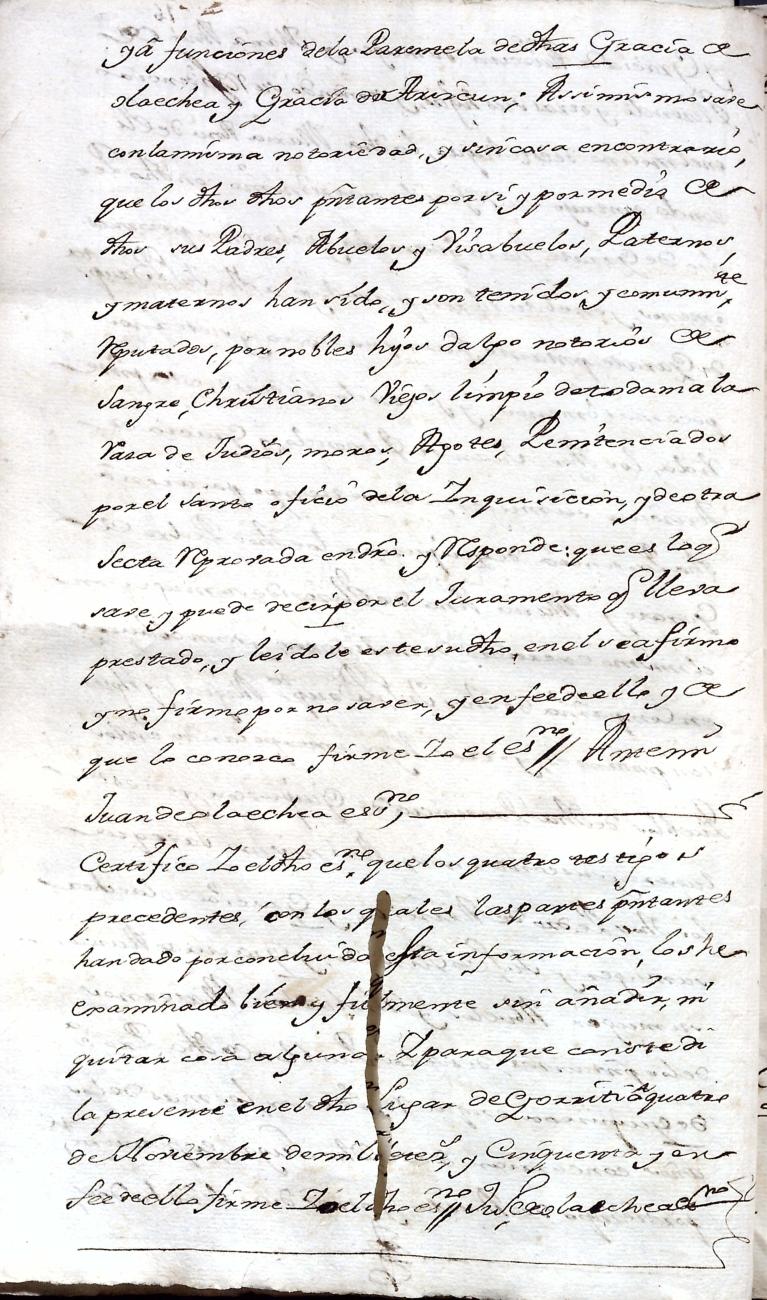 ya funciones dela Paremela de dhas Gracia de
olaechea y Gracia de Arircun; Assimismo save
con la misma notoriedad, y sin cosa encontrario,
que los dhos dhos pñtantes por si y por medio de
dhos sus Padres, Abuelos y Visabuelos, Paternos,
y maternos han sido, y son tenidos, y comunmte
Reputados, por nobles hijos dalgo notorios de
Sangre, Christianos Viejos limpio de toda mala
Raza de Judios, moros, Agotes, Penitenciados
por el santo oficio dela Inquisicion, y de otra
Secta Reprovada en dro. y Responde: que es lo q
save y puede decir por el Juramento q lleva
prestado, y leidole este su dho, en el se afirmo
y no firmo por no saver, y en fee de ello y de
que lo conozco firme Yo el esno // Antemi
Juan de olaechea esno,
Certifico Yo el dho esno que los quatro testigos
precedentes, con los quales las partes pñtantes
han dado por concluida esta informacion, los he
examinado bien y fielmente sin añadir, ni
quitar cosa alguna. Y para que conste di
la presente en el dho Lugar de Gorriti a quatro
de Noviembre de mil setezs y Cinquenta y en
fee de ello firme Yo el dho esno // Jun de olaechea esno